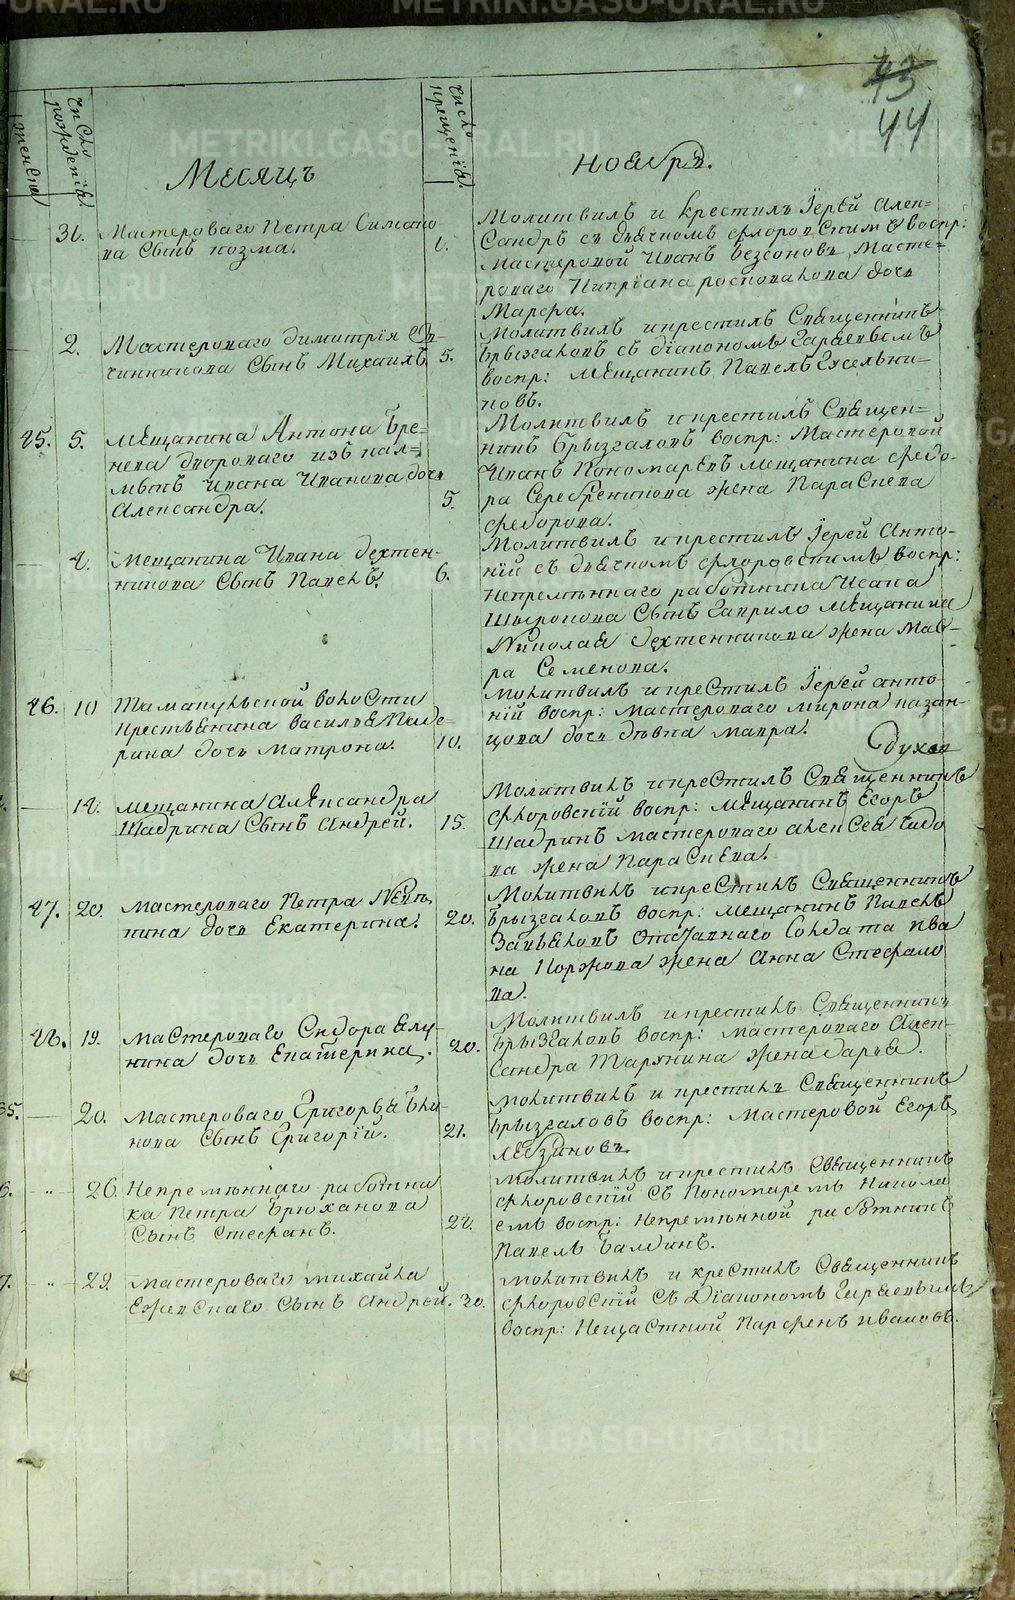 43
44
женска
Число рожденія
Месяцъ
Число крещенія
ноября.
31.
Мастероваго Петра Симоно
ва Сынъ козма.
1.
Молитвилъ и крестилъ Іерей Алек=
Сандръ съ дьячкомъ Флоровскимъ воспр:
Мастеровой Иванъ безсоновъ, Масте=
роваго Кипріана росковалова дочь
Марфа.
2.
Мастероваго димитрія Ов
чинникова Сынъ Михаилъ.
5.
Молитвилъ и крестилъ Священникъ
брызгаловъ съ діакономъ Гаряевымъ
воспр: Мещанинъ Павелъ Гусельни=
ковъ.
45.
5.
Мещанина Антона бре=
нева двороваго изъ кал=
мыкъ Ивана Иванова дочь
Александра.
5.
Молитвилъ и крестилъ Священ=
никъ брызгаловъ воспр: Мастеровой
Иванъ Пономаревъ мещанина федо=
ра Серебреникова жена Параскева
федорова.
4.
Мещанина Ивана дехтен=
никова Сынъ Павелъ.
6.
Молитвилъ и крестилъ Іерей Анто=
ній съ дьячкомъ флоровскимъ воспр:
непремѣннаго работника Исака
Сынъ Гаврило мещанина
Николая дехтенникова жена Мав=
ра Семенова.
46.
10
Таманульской волости
крестьянина василья
дочь Матрона.
10.
Молитвилъ и крестилъ Іерей анто
ній воспр: мастероваго мирона казан=
цова дочь дѣвка мавра.
14.
мещанина Александра
Шадрина Сынъ Андрей.
15.
Молитвилъ и крестилъ Священникъ
флоровскій воспр: мещанинъ Егоръ
Шадринъ мастероваго алексея
ва жена Параскева.
47.
20.
мастероваго Петра
кина дочь Екатерина.
20.
Молитвилъ и крестилъ Священникъ
брызгаловъ воспр: мещанинъ Павелъ
Завьяловъ отставнаго Солдата ива
на Коржова жена Анна Стефано
ва.
48.
19.
мастероваго Сидора
нина дочь Екатерина.
20.
Молитвилъ и крестилъ Священникъ
брызгаловъ воспр: мастероваго Алек=
сандра Тархнина жена дарья.
35.
20.
Мастероваго Григорья бли=
нова Сынъ Григорій.
21.
Молитвилъ и крестилъ Священникъ
брызгаловъ воспр: Мастеровой Егоръ
6.
26.
Непремѣннаго работни
ка Петра брюханова
Сынъ Стефанъ.
28.
Молитвилъ и крестилъ Священникъ
флоровскій съ Пономаремъ Никола
емъ воспр: Непремѣнной работникъ
Павелъ балдинъ.
7.
29.
Мастероваго михайла
Сынъ Андрей.
30.
Молитвилъ и крестилъ Священникъ
флоровскій съ діакономъ Гаряевымъ
воспр: Нещастной Парфенъ ивановъ.
METRIKI.GASO-URAL.RU